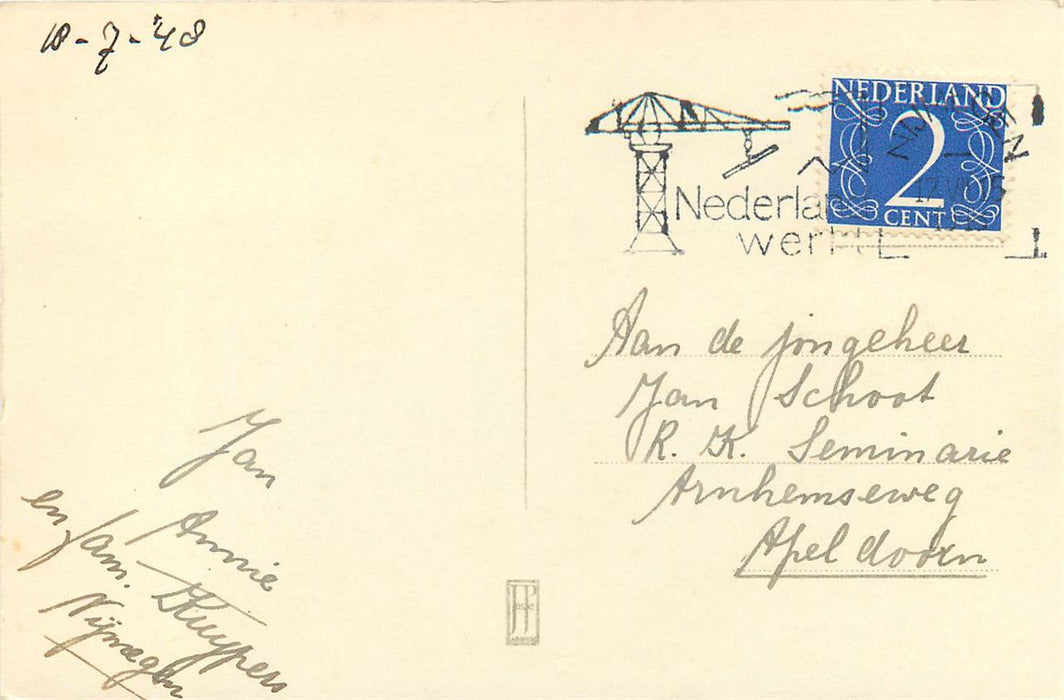 18-7-'48
NEDERLAND
2
CENT
Nederla
werkt
Aan de jongeheer
Jan Schoot
R. K. Seminarie
Arnhemseweg
Apeldoorn
Jan
Annie
en fam. Kuypers
Nijmegen
JP